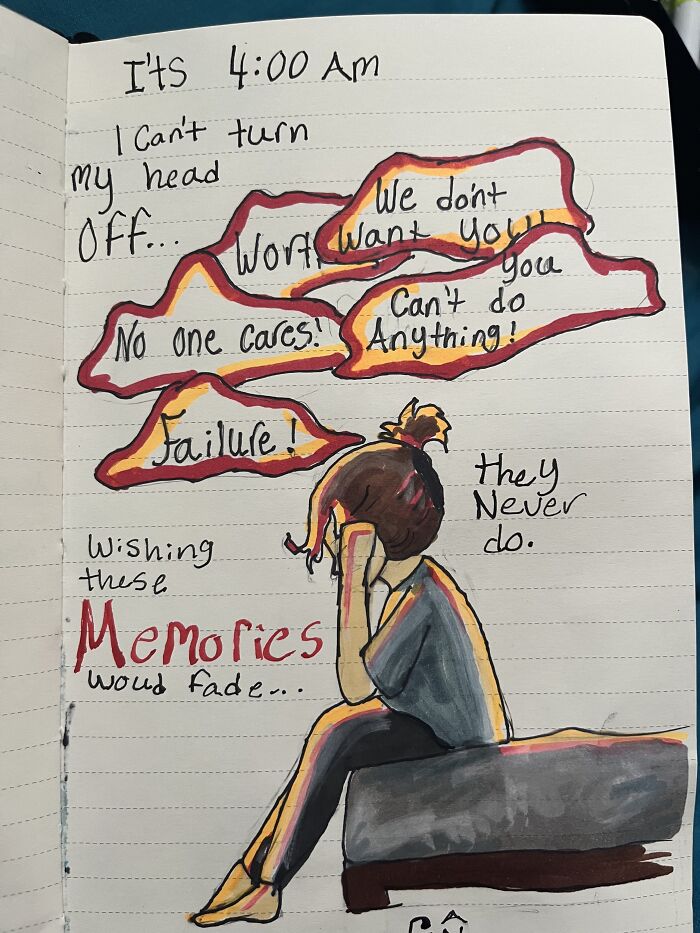 I'ts 4:00 Am
I can't turn
my head
Off...
We do'nt
Want you!!
you
Can't do
Anything!
No one cares!
Failure!
they
Never
do.
Wishing
these
Memories
woud fade...